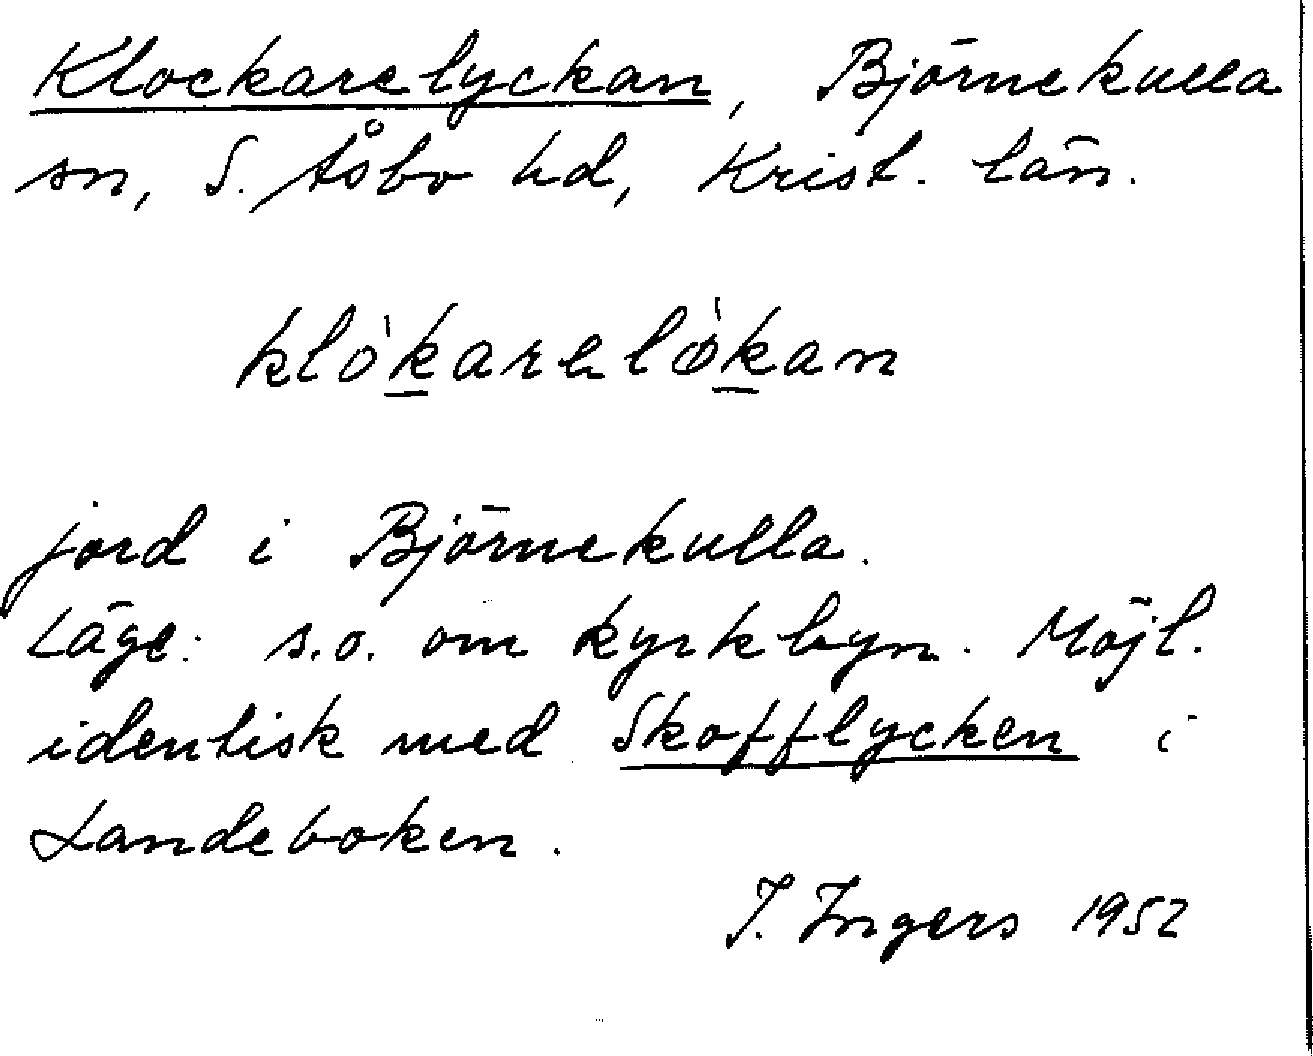 Klockarelyckan, Björnekulla
sn, S. Åsbo hd, Krist. län.
klò̱karelø̀ḵan
jord i Björnekulla.
Läge: s.o. om kyrkbyn. Möjl.
identisk med Skofflycken i
Landeboken.
I. Ingers 1952